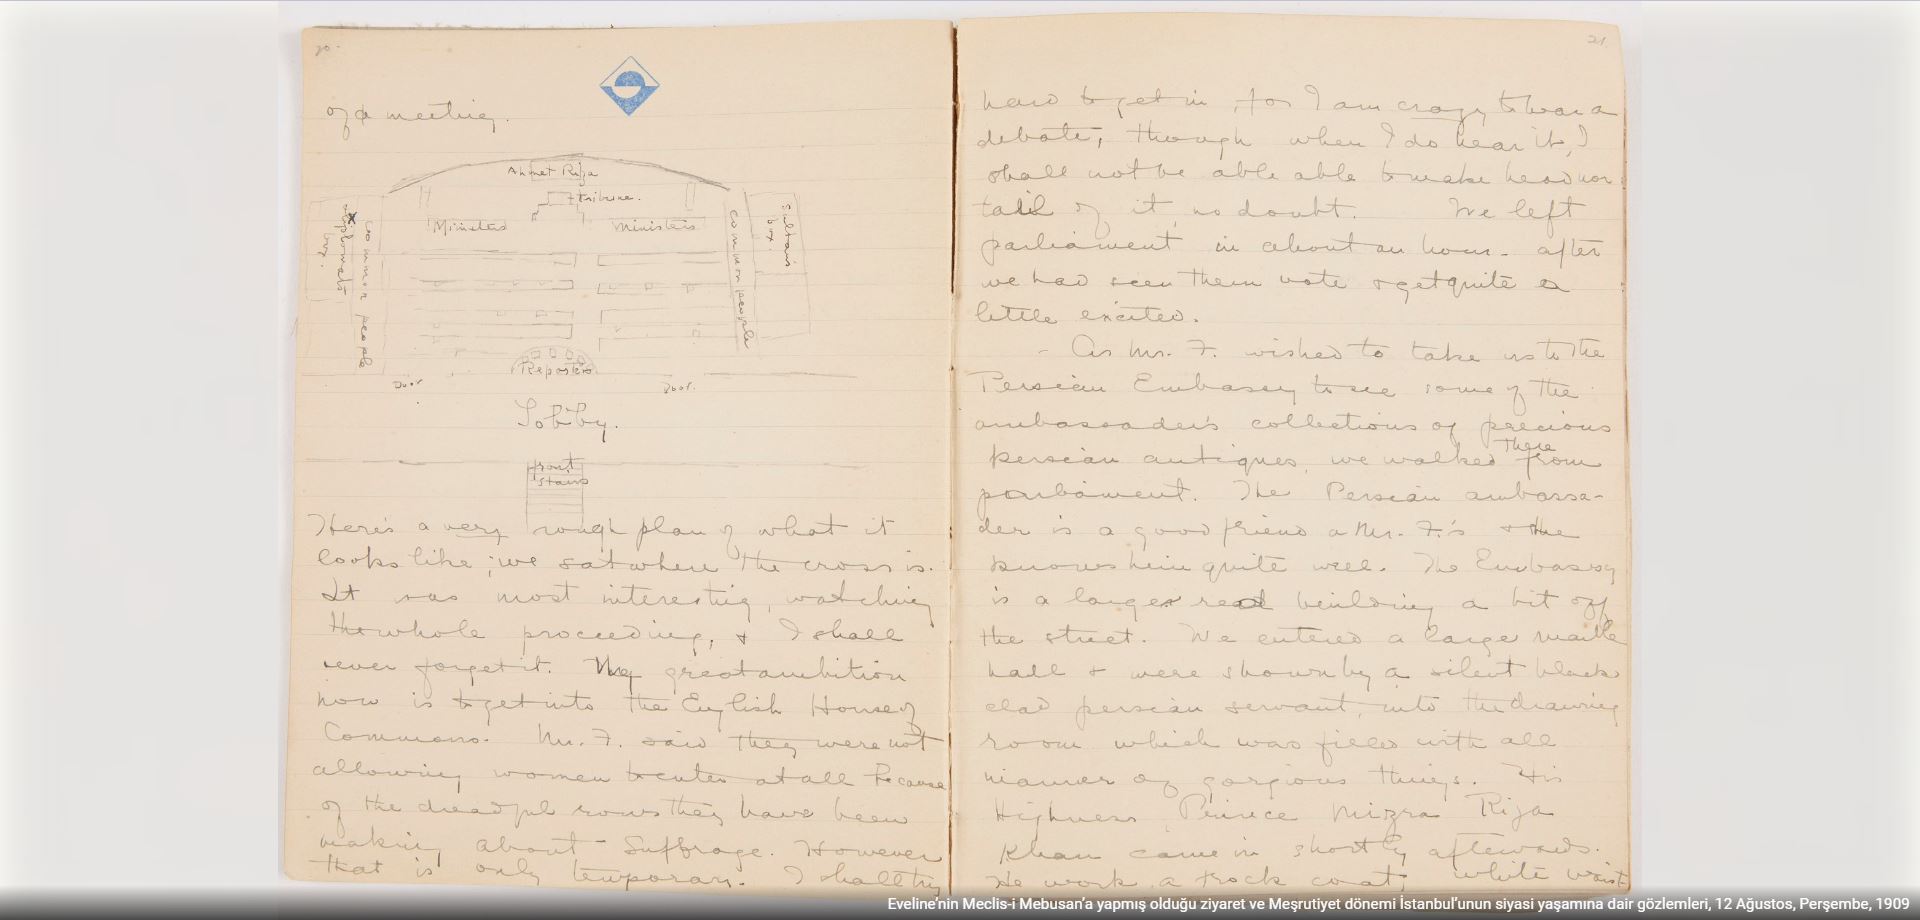 20.
of a meeting.
Ahmet Riza
tribune.
Ministers
Ministers
diplomats
box.
common people
common people
Sultans
box.
Reporters
Door.
Door.
Lobby.
front
stairs
Here's a very rough plan of what it
looks like; we sat where the cross is.
It was most interesting, watching
the whole proceeding, & I shall
never forget it. My great ambition
now is to get into the English House of
Commons. Mr. F. said they were not
allowing women to enter at all because
of the dreadful rows they have been
making about Suffrage. However
that is only temporary. I shall try
21.
hard to get in, for I am crazy to hear a
debate, though when I do hear it, I
shall not be able able to make head nor
tail of it, no doubt. We left
parliament in about an hour - after
we had seen them vote & get quite a
little excited.
- As Mr. F. wished to take us to the
Persian Embassy to see some of the
ambassader's collections of precious
persian antiques, we walked there from
parliament. The Persian ambassa-
der is a good friend a Mr. F.'s & he
knows him quite well. The Embassy
is a large red building a bit off
the street. We entered a large marble
hall & were shown by a silent black
clad persian servant, into the drawing
room which was filled with all
manner of gorgious things. His
Highness, Prince Mizra Riza
Khan came in shortly afterwards.
He work a frock coat, white waist
Eveline'nin Meclis-i Mebusan'a yapmış olduğu ziyaret ve Meşrutiyet dönemi İstanbul'unun siyasi yaşamına dair gözlemleri, 12 Ağustos, Perşembe, 1909